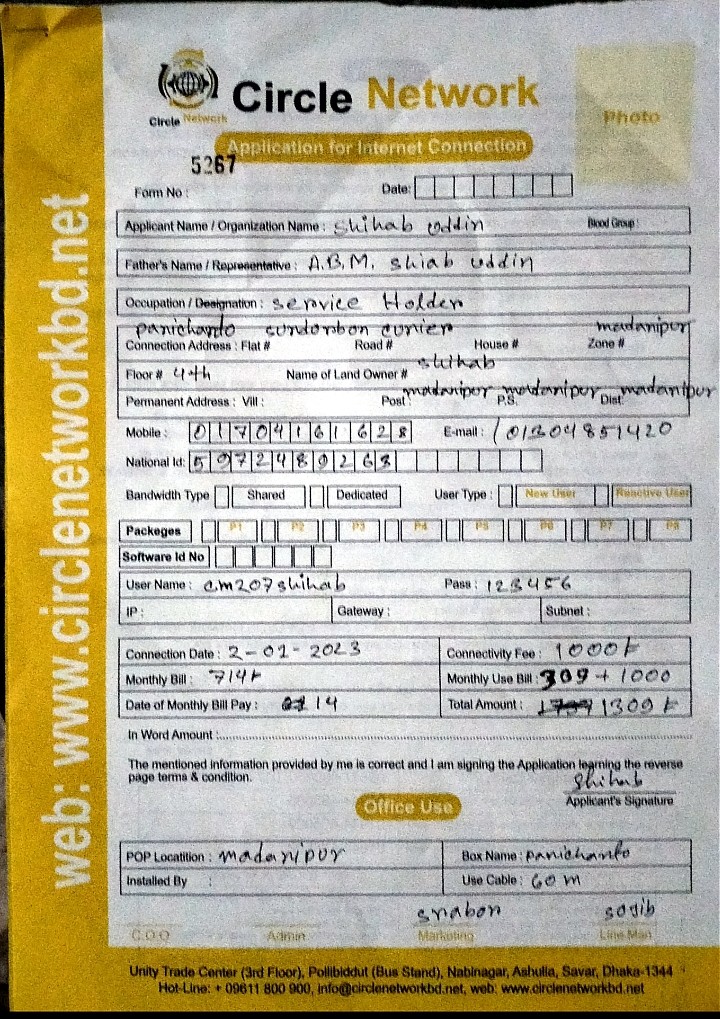 Circle Network
Circle Network
Photo
Application for Internet Connection
5267
Form No :
Date:
Applicant Name / Organization Name : Shihab uddin Blood Group :
Father's Name / Representative : A.B.M. Shiab uddin
Occupation / Designation : Service Holder
panichanto sundorbon curier madanipur
Connection Address : Flat # Road # House # Zone #
Floor # 4th Name of Land Owner # Shihab
Permanent Address : Vill : Post : madanipur P.S. madanipur Dist madanipur
Mobile : 01704161628 E-mail : / 01304851420
National Id: 5972480268
Bandwidth Type Shared Dedicated User Type : New User Reactive User
Packeges P1 P2 P3 P4 P5 P6 P7 P8
Software Id No
User Name : cm207shihab Pass : 123456
IP : Gateway : Subnet :
Connection Date : 2-01-2023 Connectivity Fee : 1000৳
Monthly Bill : 714৳ Monthly Use Bill : 309 + 1000
Date of Monthly Bill Pay : 14 Total Amount : 1309৳
In Word Amount :
The mentioned information provided by me is correct and I am signing the Application learning the reverse
page terms & condition.
Shihab
Applicant's Signature
Office Use
POP Locatition : madanipur Box Name : panichanto
Installed By : Use Cable : 60 m
snabon sogib
C.O.O Admin Marketing Line Man
Unity Trade Center (3rd Floor), Pollibiddut (Bus Stand), Nabinagar, Ashulia, Savar, Dhaka-1344
Hot-Line: + 09611 800 900, info@circlenetworkbd.net, web: www.circlenetworkbd.net
web: www.circlenetworkbd.net